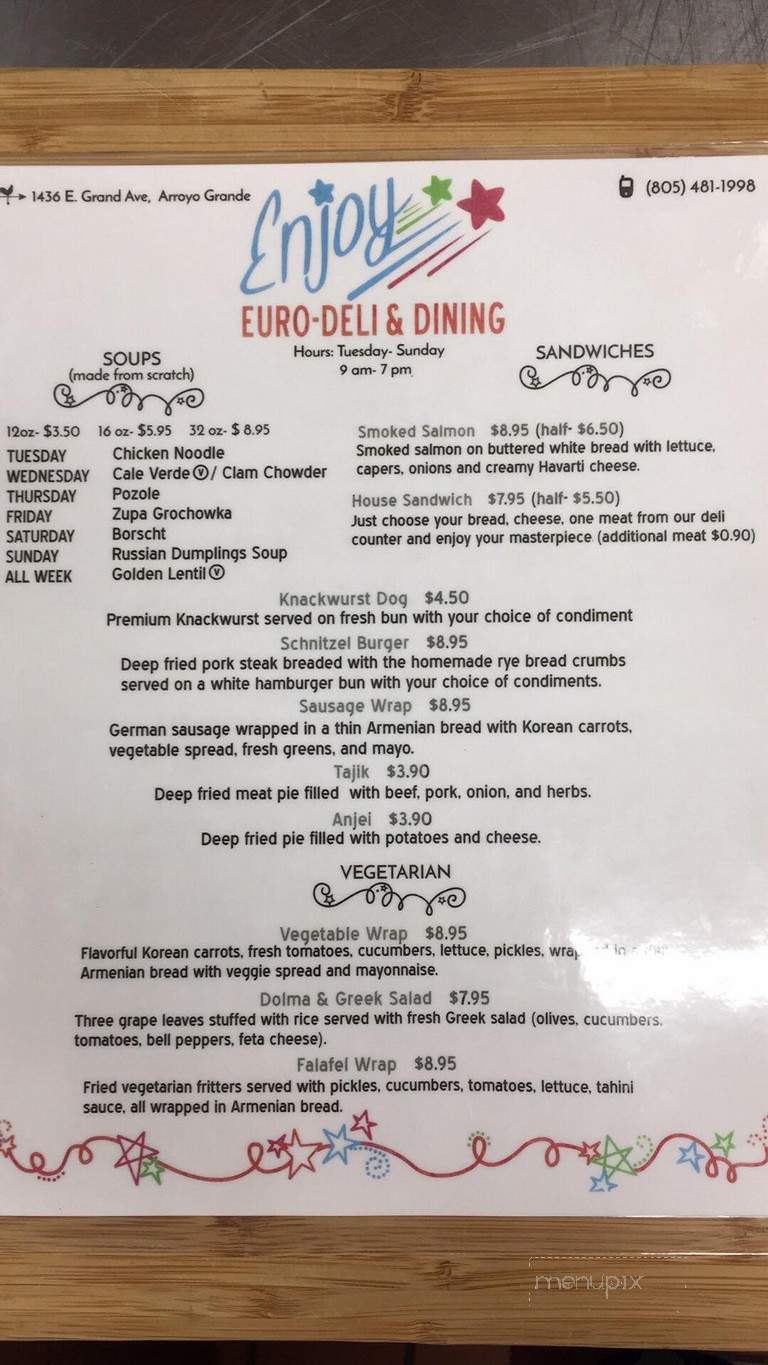 1436 E. Grand Ave, Arroyo Grande
(805) 481-1998
Enjoy
EURO-DELI & DINING
Hours: Tuesday- Sunday
9 am- 7 pm
SOUPS
(made from scratch)
12oz- $3.50 16 oz- $5.95 32 oz- $ 8.95
TUESDAY Chicken Noodle
WEDNESDAY Cale Verde Ⓥ/ Clam Chowder
THURSDAY Pozole
FRIDAY Zupa Grochowka
SATURDAY Borscht
SUNDAY Russian Dumplings Soup
ALL WEEK Golden Lentil Ⓥ
SANDWICHES
Smoked Salmon $8.95 (half- $6.50)
Smoked salmon on buttered white bread with lettuce,
capers, onions and creamy Havarti cheese.
House Sandwich $7.95 (half- $5.50)
Just choose your bread, cheese, one meat from our deli
counter and enjoy your masterpiece (additional meat $0.90)
Knackwurst Dog $4.50
Premium Knackwurst served on fresh bun with your choice of condiment
Schnitzel Burger $8.95
Deep fried pork steak breaded with the homemade rye bread crumbs
served on a white hamburger bun with your choice of condiments.
Sausage Wrap $8.95
German sausage wrapped in a thin Armenian bread with Korean carrots,
vegetable spread, fresh greens, and mayo.
Tajik $3.90
Deep fried meat pie filled with beef, pork, onion, and herbs.
Anjei $3.90
Deep fried pie filled with potatoes and cheese.
VEGETARIAN
Vegetable Wrap $8.95
Flavorful Korean carrots, fresh tomatoes, cucumbers, lettuce, pickles, in
Armenian bread with veggie spread and mayonnaise.
Dolma & Greek Salad $7.95
Three grape leaves stuffed with rice served with fresh Greek salad (olives, cucumbers,
tomatoes, bell peppers, feta cheese).
Falafel Wrap $8.95
Fried vegetarian fritters served with pickles, cucumbers, tomatoes, lettuce, tahini
sauce, all wrapped in Armenian bread.
menupix